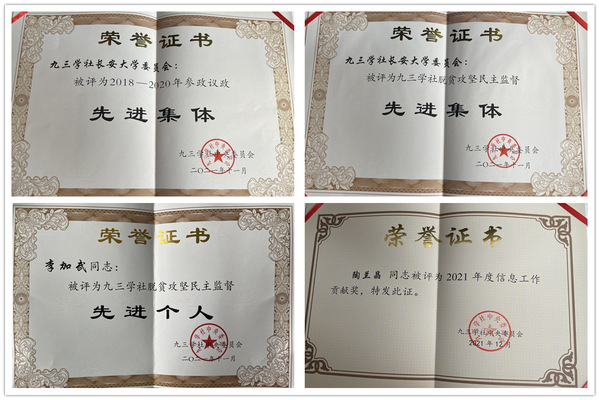 荣誉证书
九三学社长安大学委员会：
被评为2018—2020年参政议政
先进集体
九三学社中央委员会
二〇二一年十一月
荣誉证书
九三学社长安大学委员会：
被评为九三学社脱贫攻坚民主监督
先进集体
九三学社中央委员会
二〇二一年十一月
荣誉证书
李加武同志：
被评为九三学社脱贫攻坚民主监督
先进个人
九三学社中央委员会
二〇二一年十一月
荣誉证书
陶兰晶 同志被评为2021年度信息工作
贡献奖，特发此证。
九三学社中央委员会
2021年12月